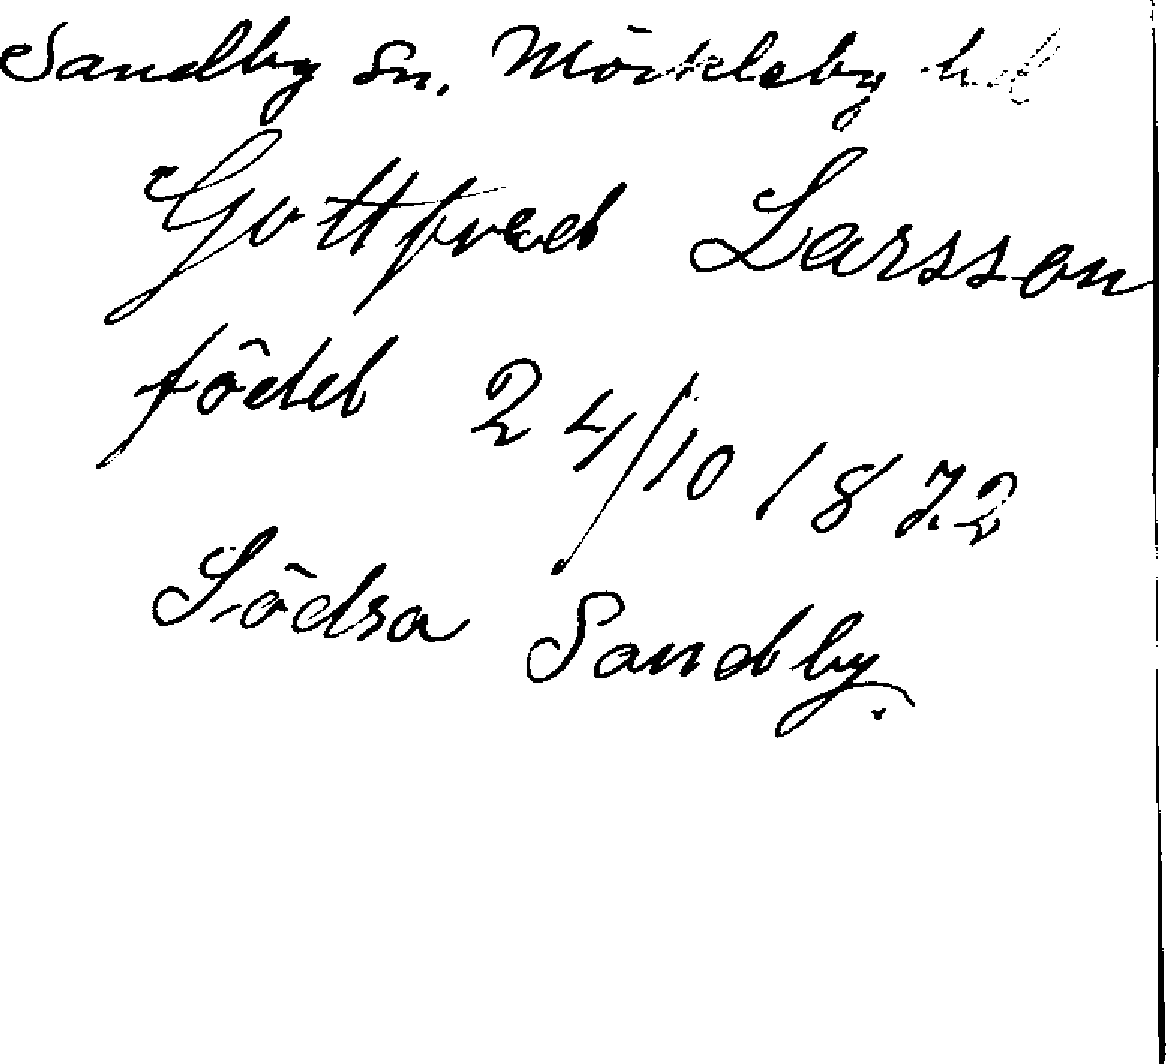 Sandby sn. Mörkleby hd
Gottfred Larsson
född 24/10 1872
Södra Sandby.